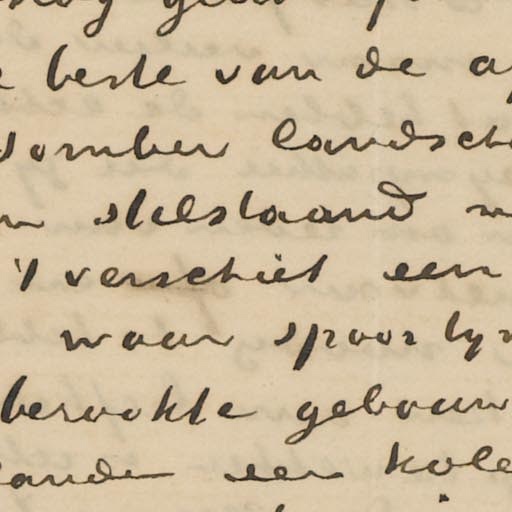 beste van de
somber landsch
stilstaand
't verschiet een
waar spoorlyn
berookte gebouw
een kole